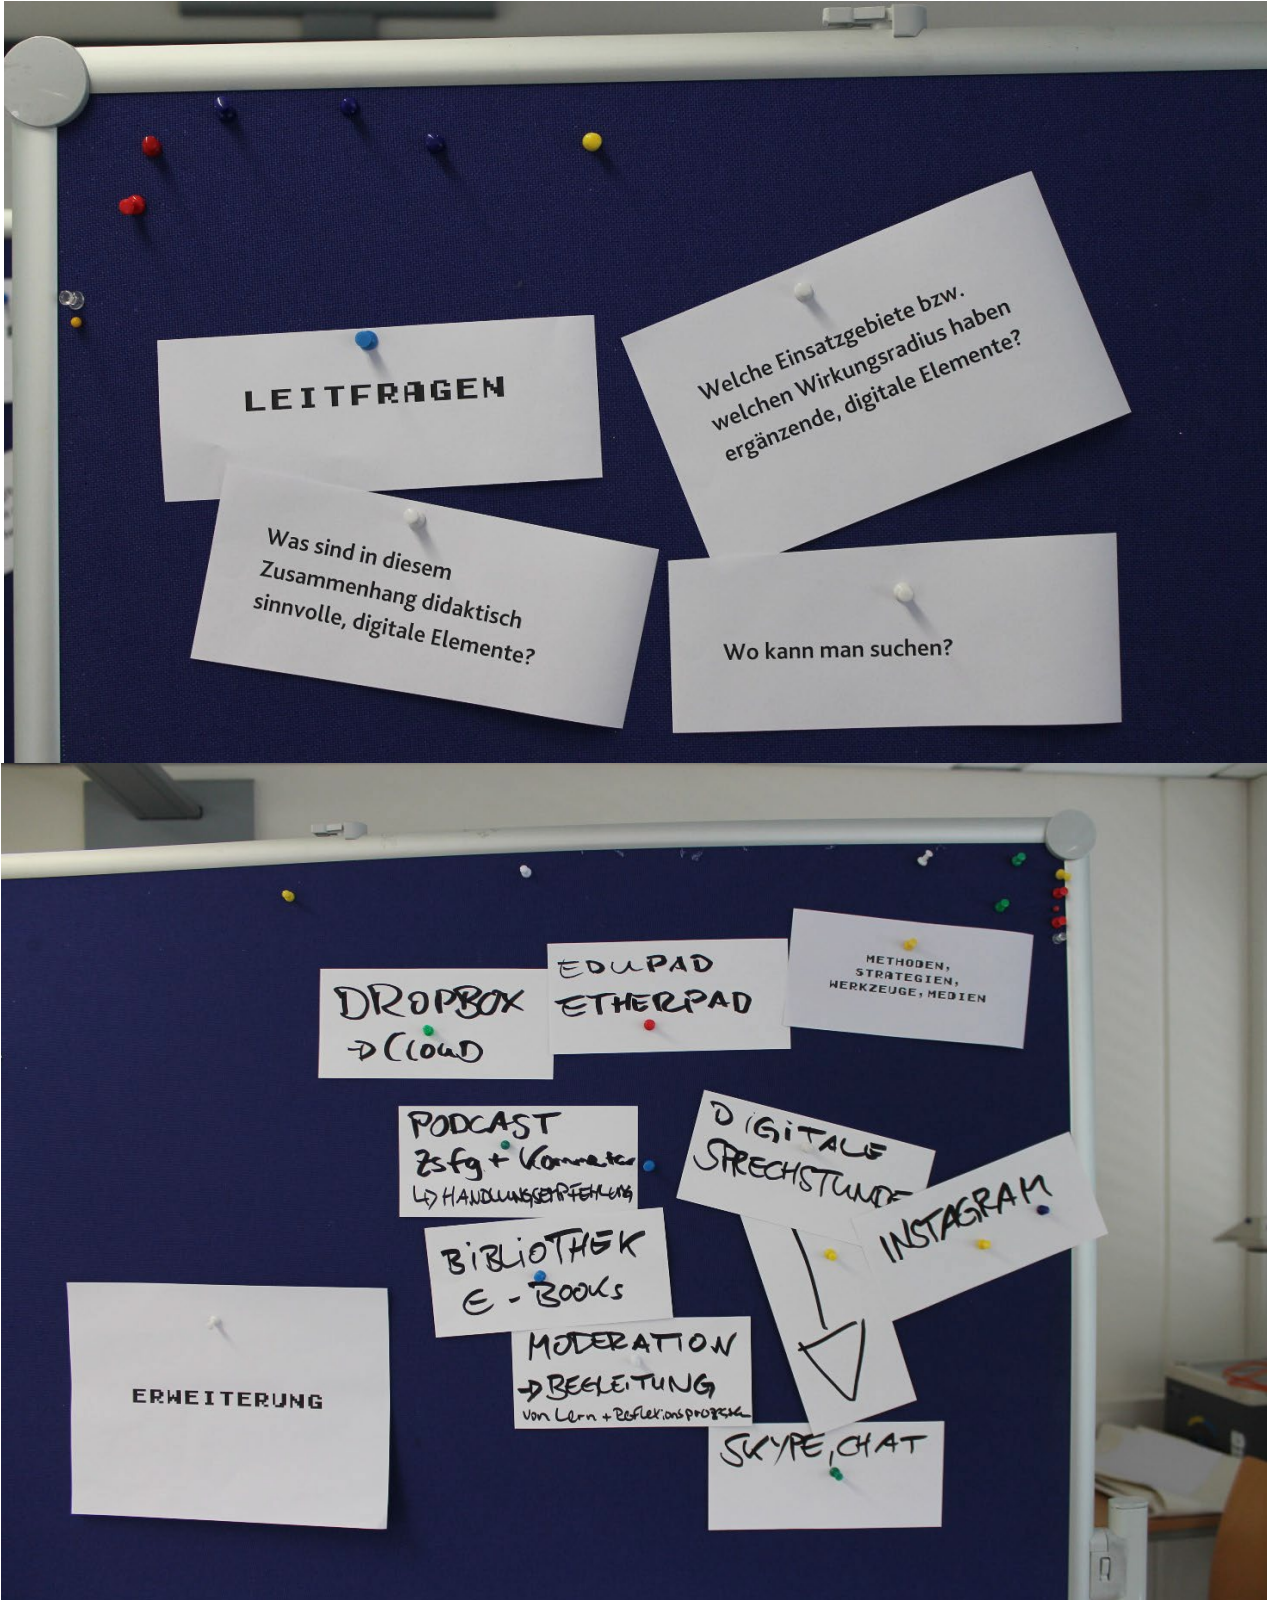 LEITFRAGEN
Welche Einsatzgebiete bzw.
welchen Wirkungsradius haben
ergänzende, digitale Elemente?
Was sind in diesem
Zusammenhang didaktisch
sinnvolle, digitale Elemente?
Wo kann man suchen?
METHODEN,
STRATEGIEN,
WERKZEUGE, MEDIEN
EDUPAD
ETHERPAD
DROPBOX
→ CLOUD
PODCAST
Zsfg +
↳ HANDLUNGSEMPFEHLUNG
DIGITALE
SPRECHSTUNDE
INSTAGRAM
BIBLIOTHEK
E - BOOKS
MODERATION
→ BEGLEITUNG
von Lern + Reflexionsprozessen
SKYPE, CHAT
ERWEITERUNG